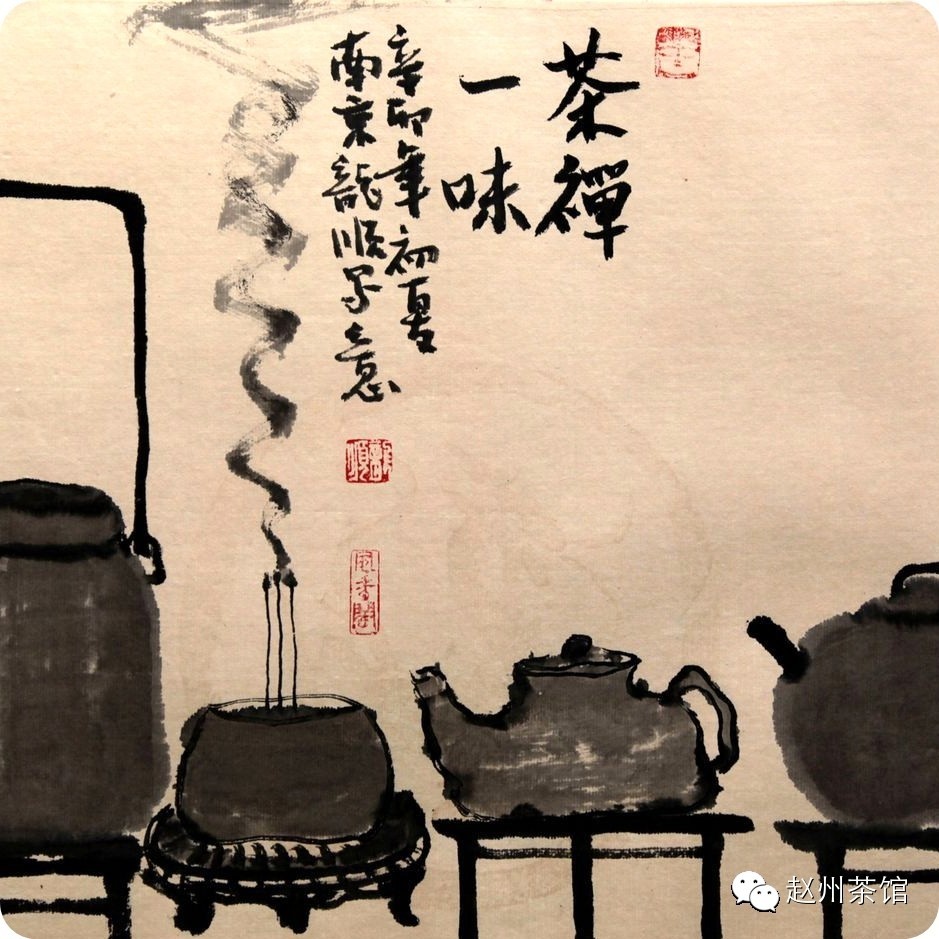 茶禪
一味
辛卯年初夏
南京龍順写意
龍順
赵州茶馆